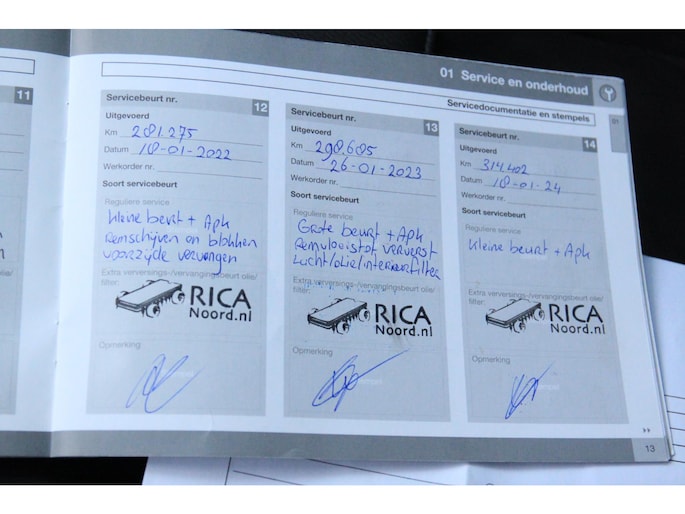 01 Service en onderhoud
Servicedocumentatie en stempels
01
11
Servicebeurt nr. 12
Uitgevoerd
Km 281.275
Datum 18-01-2022
Werkorder nr.
Soort servicebeurt
Reguliere service
kleine beurt + Apk
Remschijven en blokken
voorzijde vervangen
Extra verversings-/vervangingsbeurt olie/
filter:
RICA
Noord.nl
Opmerking
Servicebeurt nr. 13
Uitgevoerd
Km 298.685
Datum 26-01-2023
Werkorder nr.
Soort servicebeurt
Reguliere service
Grote beurt + Apk
Remvloeistof ververst
Lucht/olie/interieurfilter
Extra verversings-/vervangingsbeurt olie/
filter:
RICA
Noord.nl
Opmerking
Servicebeurt nr. 14
Uitgevoerd
Km 314.402
Datum 18-01-24
Werkorder nr.
Soort servicebeurt
Reguliere service
kleine beurt + Apk
Extra verversings-/vervangingsbeurt olie/
filter:
RICA
Noord.nl
Opmerking
13